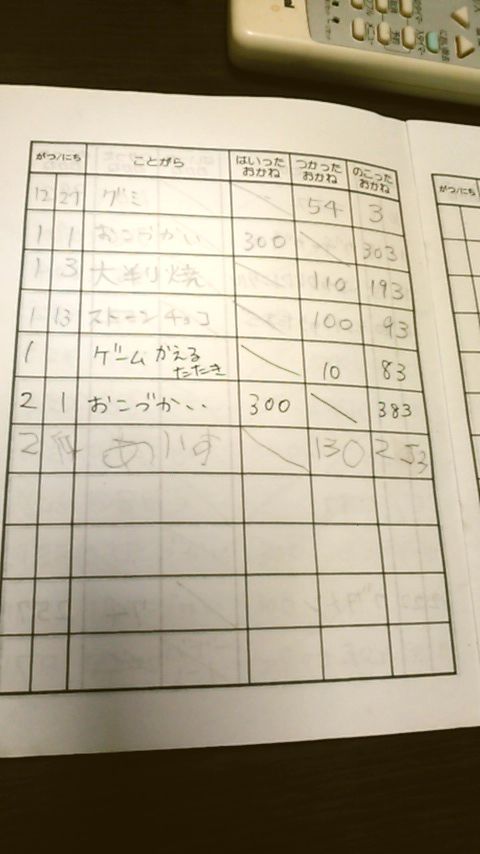 がつ/にち ことがら はいったおかね つかったおかね のこったおかね がつ/にち
12 27 グミ 54 3
1 1 おこづかい 300 303
1 3 大判り焼 110 193
1 13 ストーンチョコ 100 93
1 ゲームかえるたたき 10 83
2 1 おこづかい 300 383
2 あいす 130 253